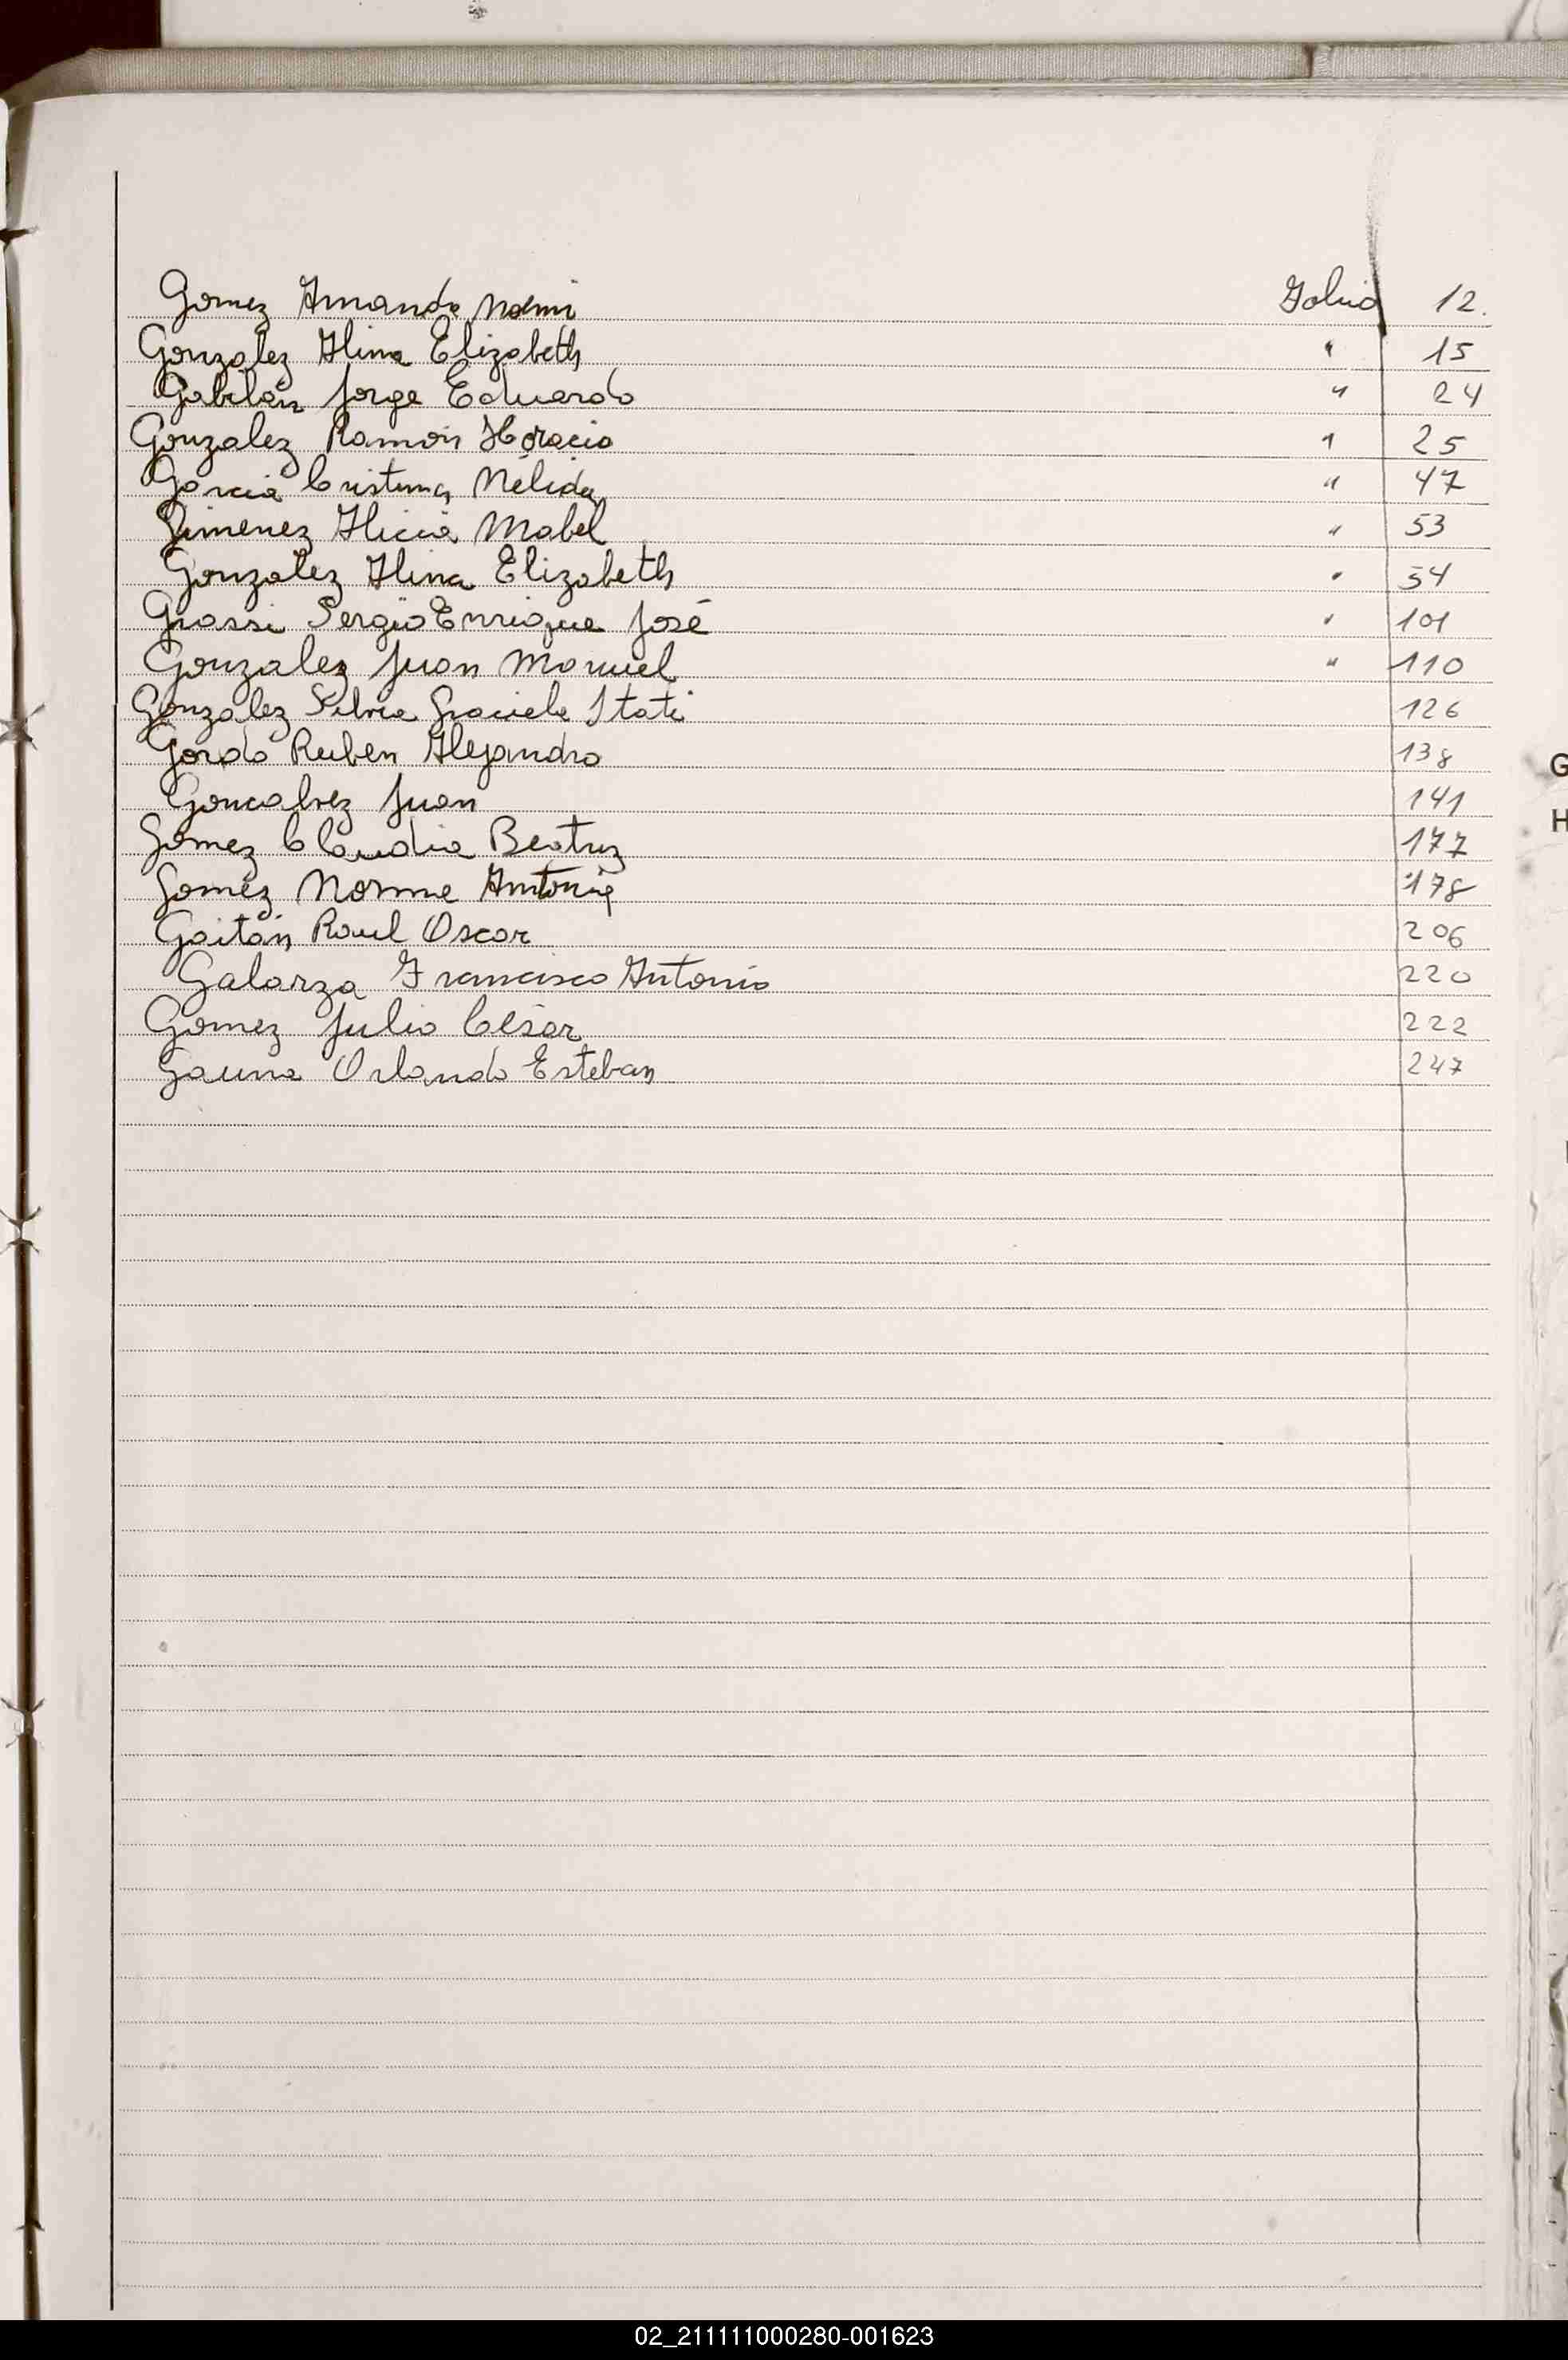 Gomez Amanda Noemi Folio 12.
Gonzalez Alina Elizabeth " 15
Gabilán Jorge Eduardo " 24
Gonzalez Ramón Horacio " 25
Garcia Cristina Nélida " 47
Gimenez Alicia Mabel " 53
Gonzalez Alina Elizabeth " 54
Grassi Sergio Enrique José " 101
Gonzalez Juan Manuel " 110
Gonzalez Silvia Graciela Itati 126
Gordo Ruben Alejandro 138
Goncalvez Juan 141
Gomez Claudia Beatriz 177
Gomez Norma Antonia 178
Gaitán Raul Oscar 206
Galarza Francisco Antonio 220
Gomez Julio César 222
Gauna Orlando Esteban 247
G
H
02_211111000280-001623